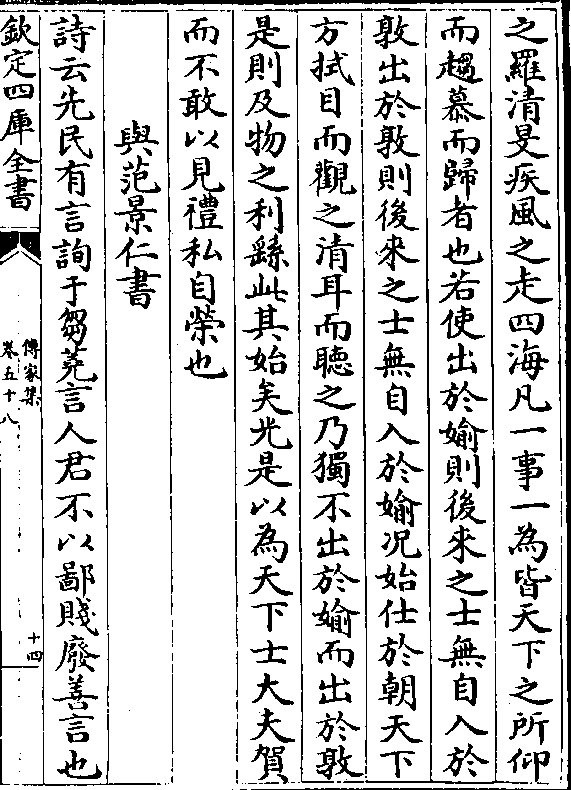 之羅清旻疾風之走四海凡一事一為皆天下之所仰
而趨慕而歸者也若使出於媮則後來之士無自入於
敦出於敦則後來之士無自入於媮況始仕於朝天下
方拭目而觀之清耳而聽之乃獨不出於媮而出於敦
是則及物之利繇此其始矣光是以為天下士大夫賀
而不敢以見禮私自榮也
與范景仁書
詩云先民有言詢于芻蕘言人君不以鄙賤廢善言也
欽定四庫全書
傳家集
卷五十八
十四